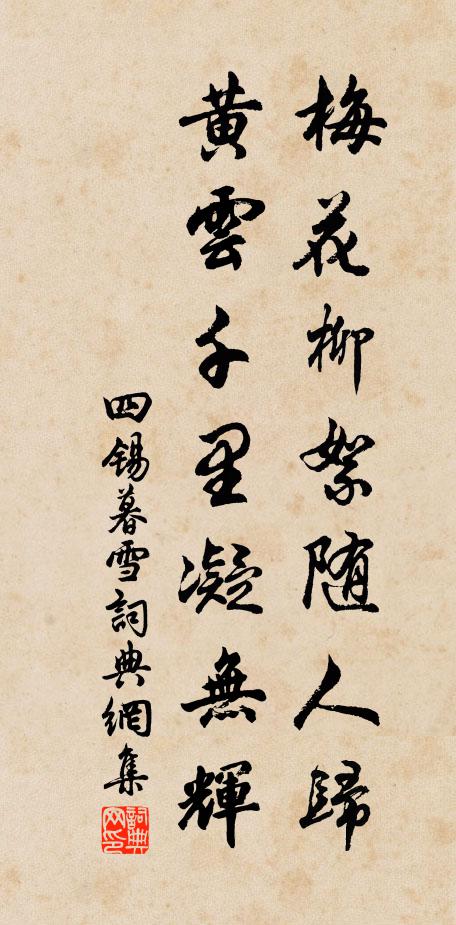 梅花柳絮随人歸
黃雲千里凝無輝
四錫暮雪詞典網集
詞典網印